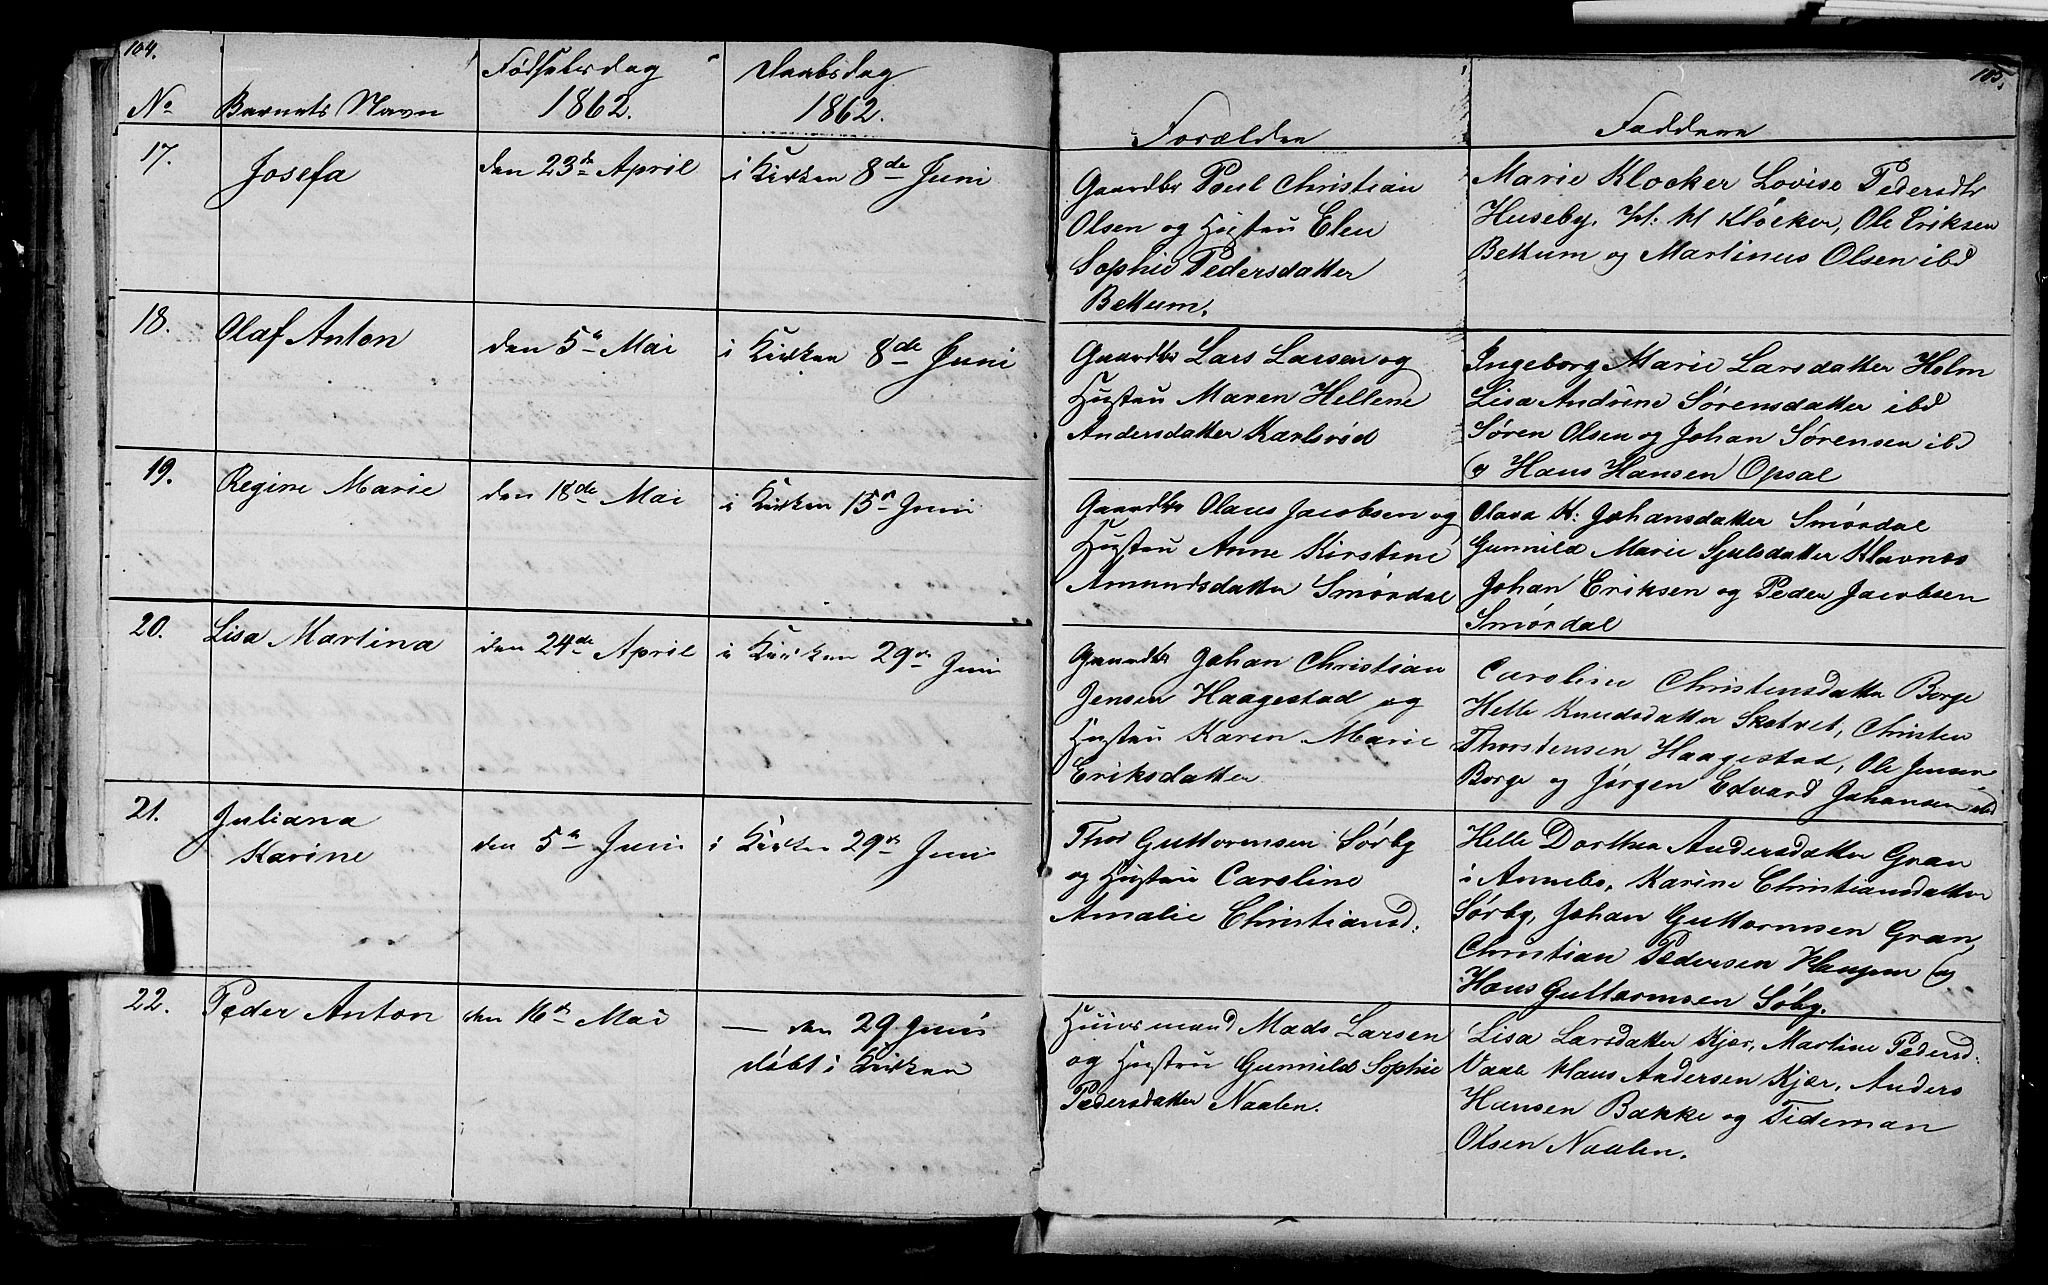 104.
Fødselsdag Daabsdag
No Barnets Navn 1862. 1862.
17. Josefa den 23de April i Kirken 8de Juni
18. Olaf Anton den 5te Mai i Kirken 8de Juni
19. Regine Marie den 18de Mai i Kirken 15de Juni
20. Lisa Martina den 24de April i Kirken 29de Juni
21. Juliana
Karine den 5te Juni i Kirken 29de Juni
22. Peder Anton den 16de Mai — den 29 Juni
døbt i Kirken
105.
Forældre Faddere
Gaardbr Poul Christian
Olsen og Hustru Elen
Sophie Pedersdatter
Bettum.
Marie Klocker Lovise Pedersdtr
Huseby. H: M Klocker, Ole Eriksen
Bettum og Martinus Olsen ibd
Gaardbr Lars Larsen og
Hustru Maren Hellene
Andersdatter Karlsrød
Ingeborg Marie Larsdatter Holm
Lisa Andrine Sørensdatter ibd
Søren Olsen og Johan Sørensen ibd
og Hans Hansen Opsal
Gaardbr Olaus Jacobsen og
Hustru Anne Kirstine
Amundsdatter Smørdal
Olava K: Johansdatter Smørdal
Gunnild Marie Sjulsdatter Klavnes
Johan Eriksen og Peder Jacobsen
Smørdal
Gaardbr Johan Christian
Jensen Haagestad og
Hustru Karen Marie
Eriksdatter
Caroline Christensdatter Borge
Helle Knudsdatter Skatvet, Christen
Thorstensen Haagestad, Ole Jensen
Borge og Jørgen Edvard Johansen ibd
Thor Guttormsen Sørby
og Hustru Caroline
Amalie Christiansd:
Helle Dorthea Andersdatter Gran
i Annebo, Karine Christiansdatter
Sørby, Johan Guttormsen Gran,
Christian Pedersen Haugen og
Hans Guttormsen Søby.
Huusmand Mads Larsen
og Hustru Gunnild Sophie
Pedersdatter Naalen.
Lisa Larsdatter Kjær, Martine Pedersd:
Vaale Klaus Andersen Kjær, Anders
Hansen Bakke og Tideman
Olsen Naalen.